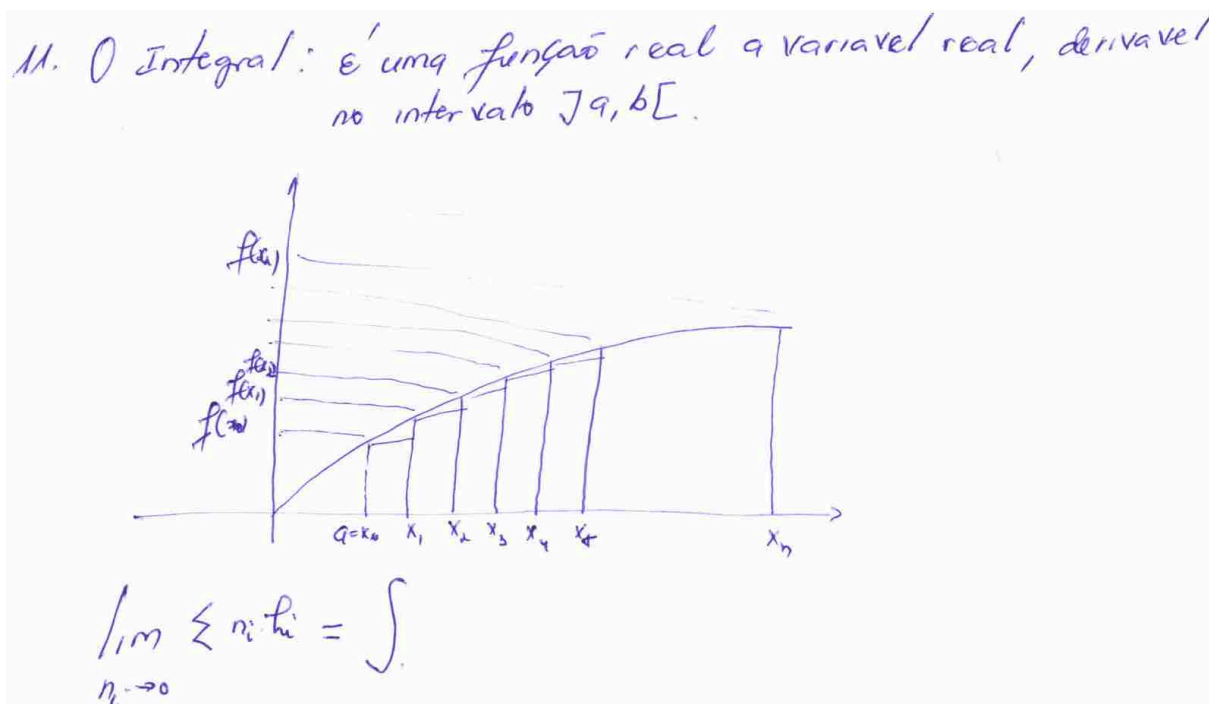 11. O Integral: é uma função real a variavel real, derivavel
no intervalo ]a, b[.
f(xn)
f(x2)
f(x1)
f(x0)
a=x0 x1 x2 x3 x4 x5 xn
lim Σ ni hi = ∫
ni→0